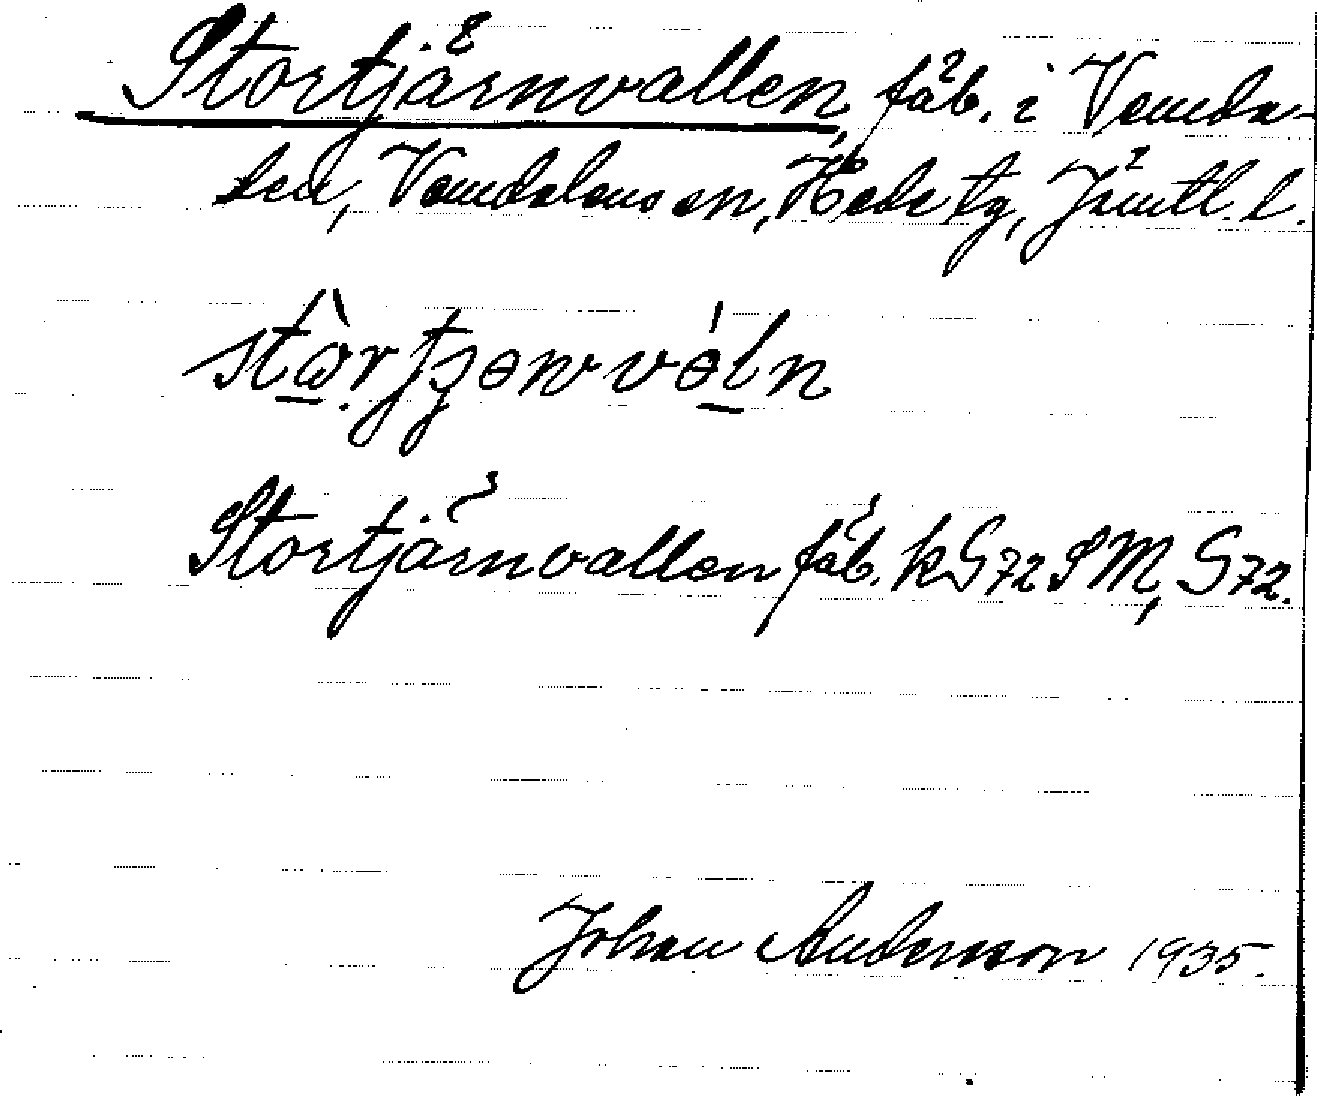 Stortjärnvallen, fäb. i Vemda-
len, Vemdalens sn, Hede tg, Jämtl. l.
Stortjärnvallen fäb. kG72SM, G72.
Johan Anderson 1935.